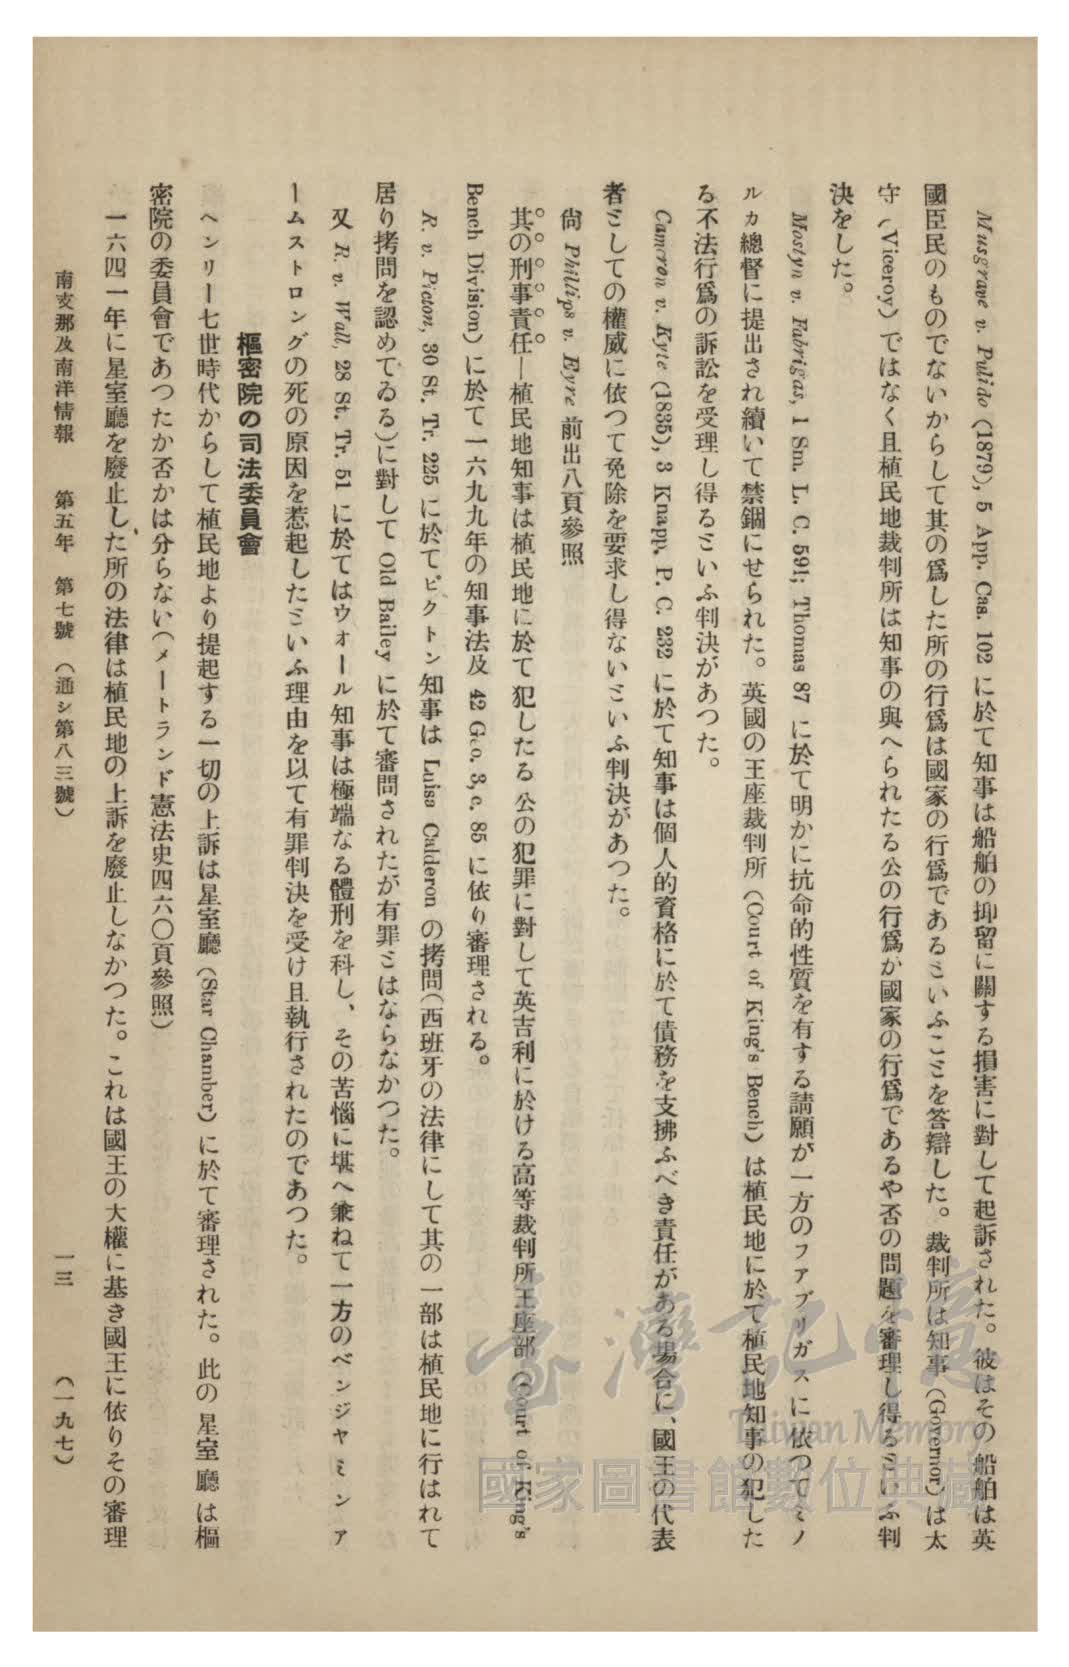 Musgrave v. Pulido (1879), 5 App. Cas. 102 に於て知事は船舶の抑留に關する損害に對して起訴された。彼はその船舶は英
國臣民のものでないからして其の爲した所の行爲は國家の行爲であるといふことを答辯した。裁判所は知事 (Governor) は太
守 (Viceroy) ではなく且植民地裁判所は知事の與へられたる公の行爲が國家の行爲であるや否の問題を審理し得るといふ判
決をした。
Mostyn v. Fabrigas, 1 Sm. L. C. 591; Thomas 87 に於て明かに抗命的性質を有する請願が一方のファブリガスに依つてミノ
ルカ總督に提出され續いて禁錮にせられた。英國の王座裁判所 (Court of King's Bench) は植民地に於て植民地知事の犯した
る不法行爲の訴訟を受理し得るといふ判決があつた。
Cameron v. Kyte (1835), 3 Knapp. P. C. 232 に於て知事は個人的資格に於て債務を支拂ふべき責任がある場合に、國王の代表
者としての權威に依つて免除を要求し得ないといふ判決があつた。
尙 Phillips v. Eyre 前出八頁參照
其の刑事責任—植民地知事は植民地に於て犯したる公の犯罪に對して英吉利に於ける高等裁判所王座部 (Court of King's
Bench Division) に於て一六九九年の知事法及 42 Geo. 3, c. 85 に依り審理される。
R. v. Picton, 30 St. Tr. 225 に於てピクトン知事は Luisa Calderon の拷問(西班牙の法律にして其の一部は植民地に行はれて
居り拷問を認めてゐる)に對して Old Bailey に於て審問されたが有罪とはならなかつた。
又 R. v. Wall, 28 St. Tr. 51 に於てはウォール知事は極端なる體刑を科し、その苦惱に堪へ兼ねて一方のベンジャミンア
ームストロングの死の原因を惹起したといふ理由を以て有罪判決を受け且執行されたのであつた。
樞密院の司法委員會
ヘンリー七世時代からして植民地より提起する一切の上訴は星室廳 (Star Chamber) に於て審理された。此の星室廳は樞
密院の委員會であつたか否かは分らない(メートランド憲法史四六〇頁參照)
一六四一年に星室廳を廢止した所の法律は植民地の上訴を廢止しなかつた。これは國王の大權に基き國王に依りその審理
南支那及南洋情報 第五年 第七號 (通シ第八三號) 一三 (一九七)
臺灣記憶
Taiwan Memory
國家圖書館數位典藏